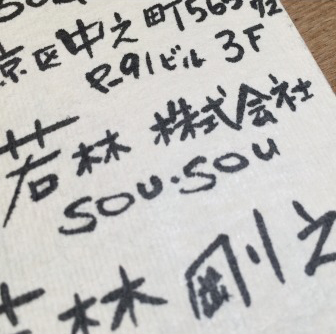 京区中之町565-72
P-91ビル 3F
若林 株式会社
SOU・SOU
若林 剛之